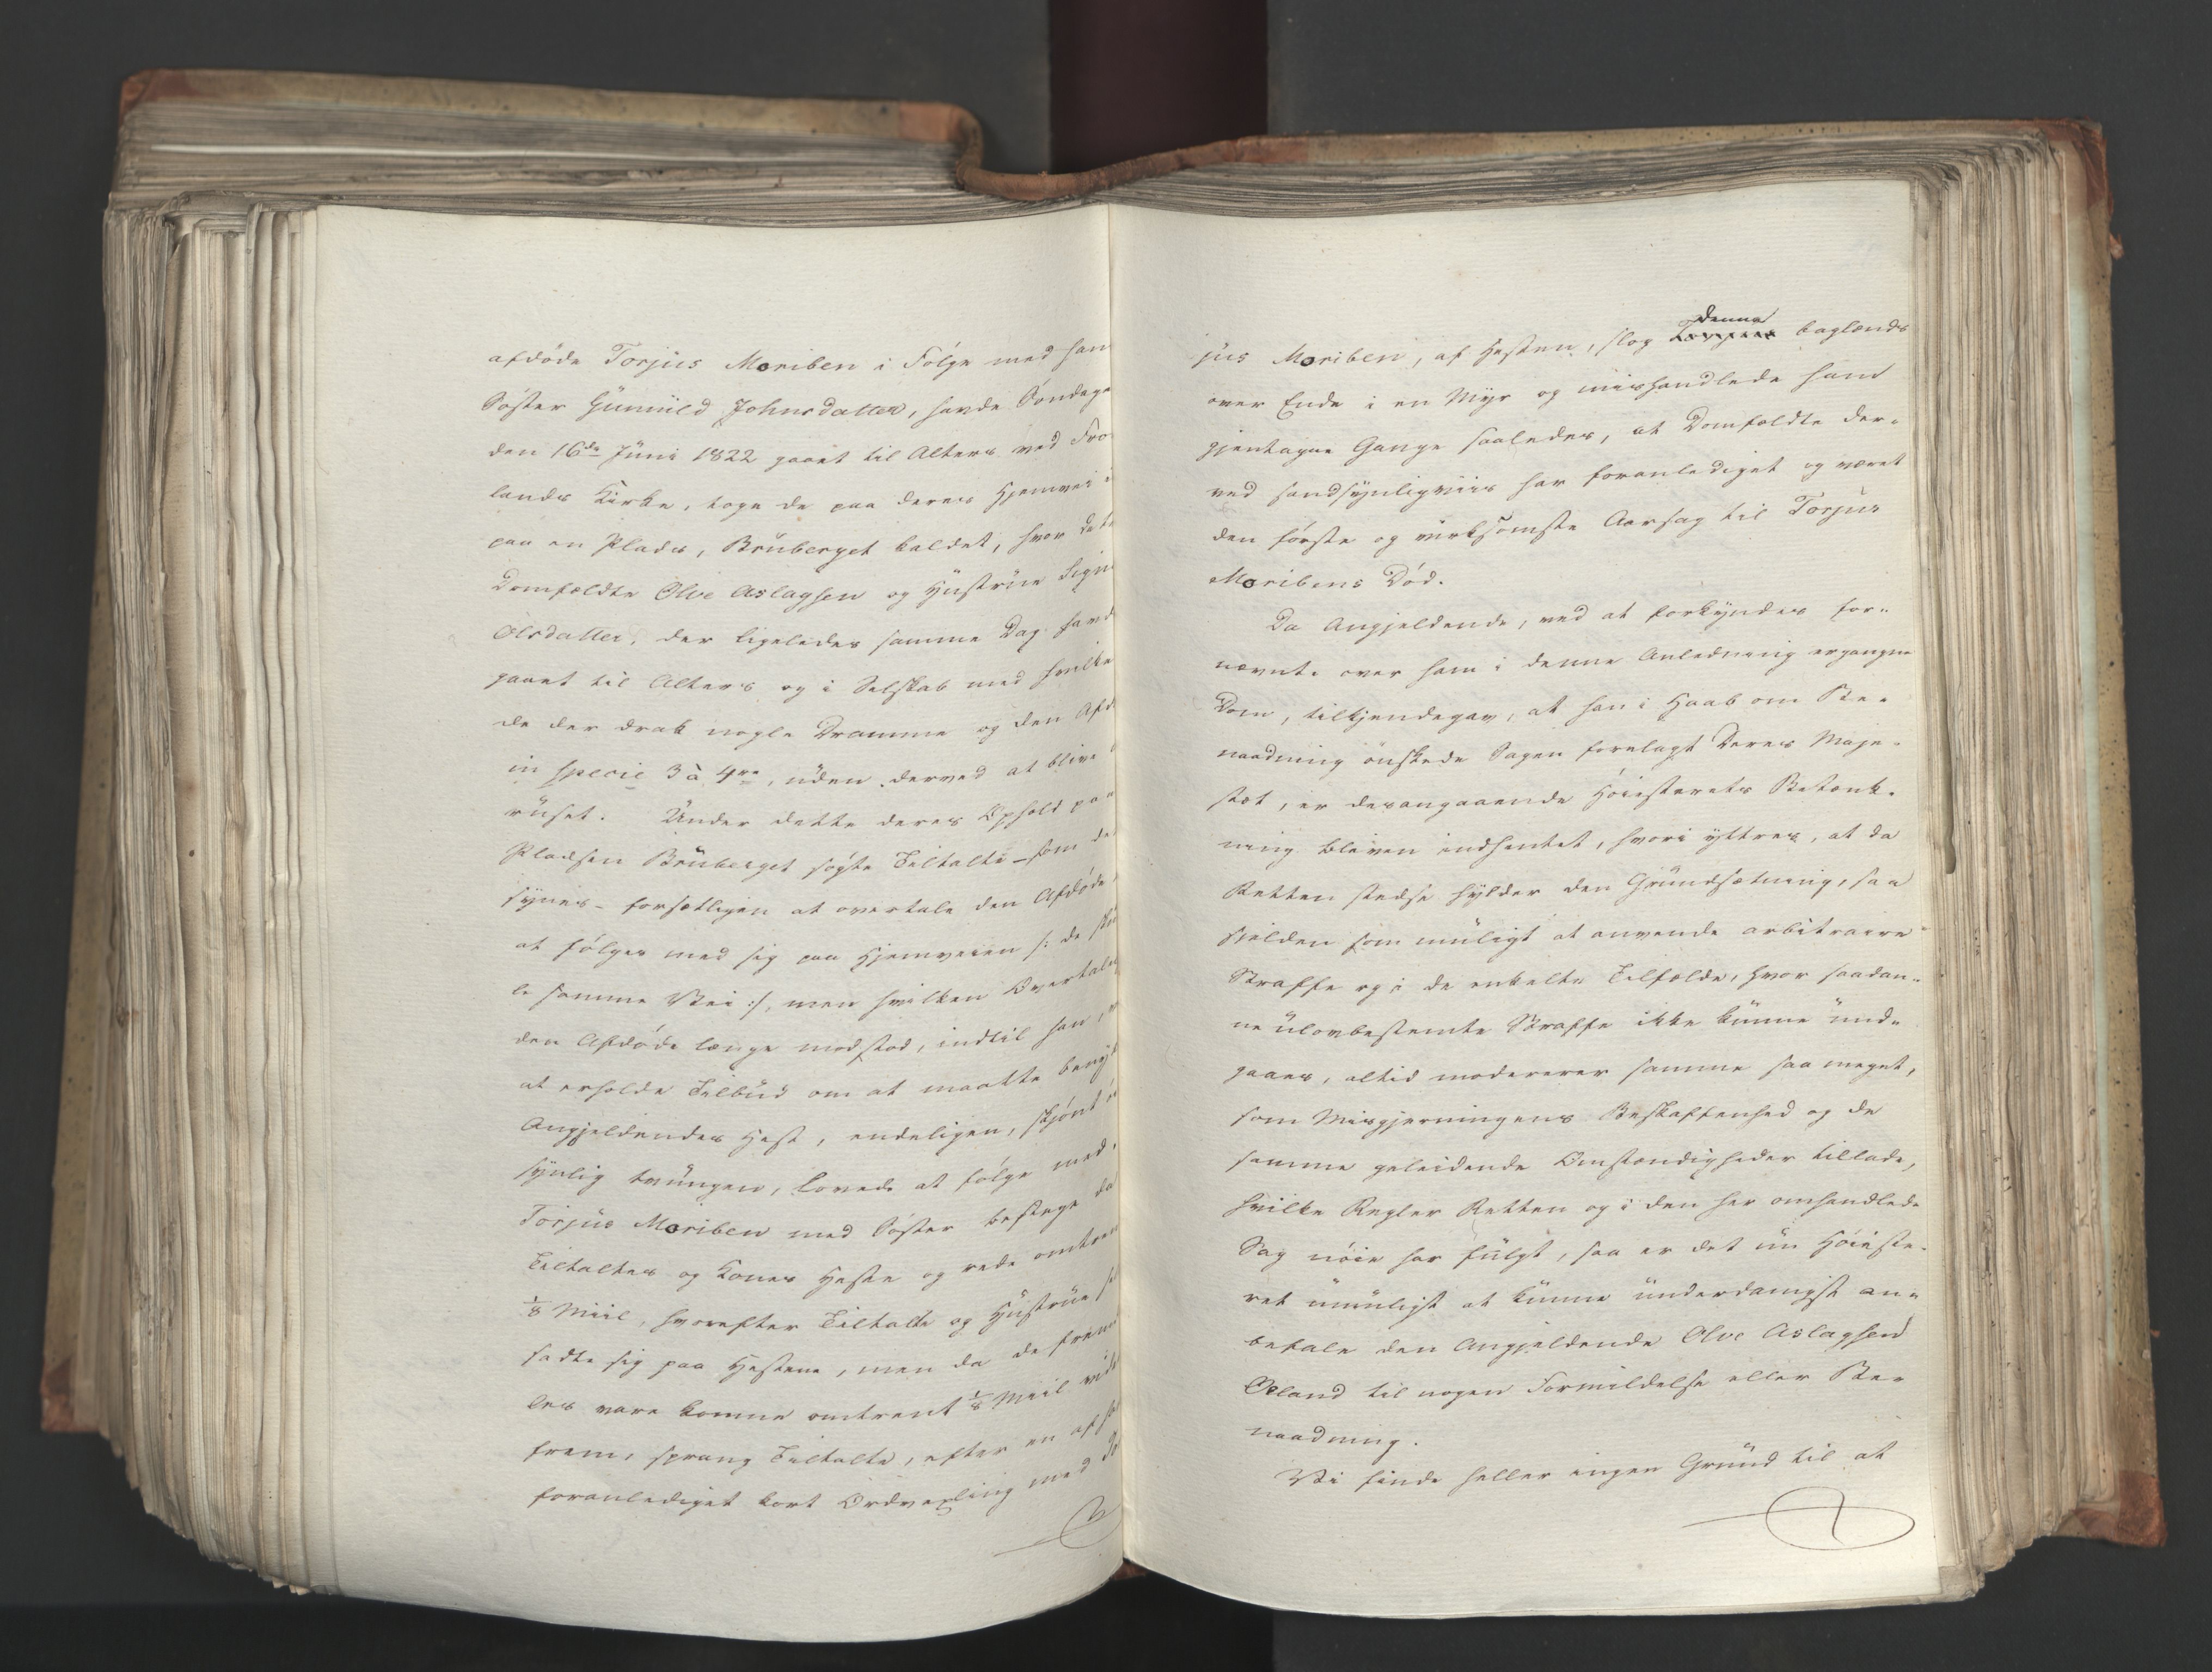 afdøde Torjus Moriben i Følge med han
Søster Gunnild Johnsdatter, havde Søndage
den 16de Juni 1822 gaaet til Alters ved Fro
lands Kirke, toge de paa deres Hjemvei i
paa en Plads, Bruberget kaldet, hvor de t
Domfældte Olve Aslagsen og Hustrue Sign
Olsdatter, der ligeledes samme Dag havd
gaaet til Alters og i Selskab med hvilke
de der drak nogle Dramme og den Afd
in specie 3 à 4re, uden derved at blive
ruset. Under dette deres Ophold paa
Pladsen Bruberget søgte Tiltalte – som de
synes – forsætligen at overtale den Afdøde
at følges med sig paa Hjemveien /: de sku
le samme Vei :/, men hvilken Overtale
den Afdøde længe modstod, indtil han,
at erholde Tilbud om at maatte beny
Angjeldendes Hest, endeligen, skjønt
synlig tvungen, lovede at følge med.
Torjus Moriben med Søster bestege da
Tiltaltes og Kones Heste og rede omtren
1/8 Miil, hvorefter Tiltalte og Hustrue s
satte sig paa Hestene, men da de frem
les vare komne omtrent 1/8 Miil vid
frem, sprang Tiltalte, efter en af h
foranlediget kort Ordvexling med To
jus Moriben, af Hesten, slog denne baglænds
over Ende i en Myr og mishandlede ham
gjentagne Gange saaledes, at Domfældte der-
ved sandsynligviis har foranlediget og været
den første og virksomste Aarsag til Torjus
Moribens Død.
Da Angjeldende, ved at forkyndes for-
nævnte over ham i denne Anledning ergangne
Dom, tilkjendegav, at han i Haab om Be-
naadning ønskede Sagen forelagt Deres Maje-
stæt, er desangaaende Høiesterets Betænk-
ning bleven indhentet, hvori yttres, at da
Retten stedse hylder den Grundsætning, saa
sjelden som muligt at anvende arbitraire
Straffe og i de enkelte Tilfælde, hvor saadan-
ne ulovbestemte Straffe ikke kunne und-
gaaes, altid modererer samme saa meget,
som Misgjerningens Beskaffenhed og de
samme geleidende Omstændigheder tillade,
hvilke Regler Retten og i den her omhandlede
Sag nøie har fulgt, saa er det un Høieste-
ret umuligt at kunne underdanigst an-
befale den Angjeldende Olve Aslagsen
Oeland til nogen Formildelse eller Be-
naadning.
Vi finde heller ingen Grund til at